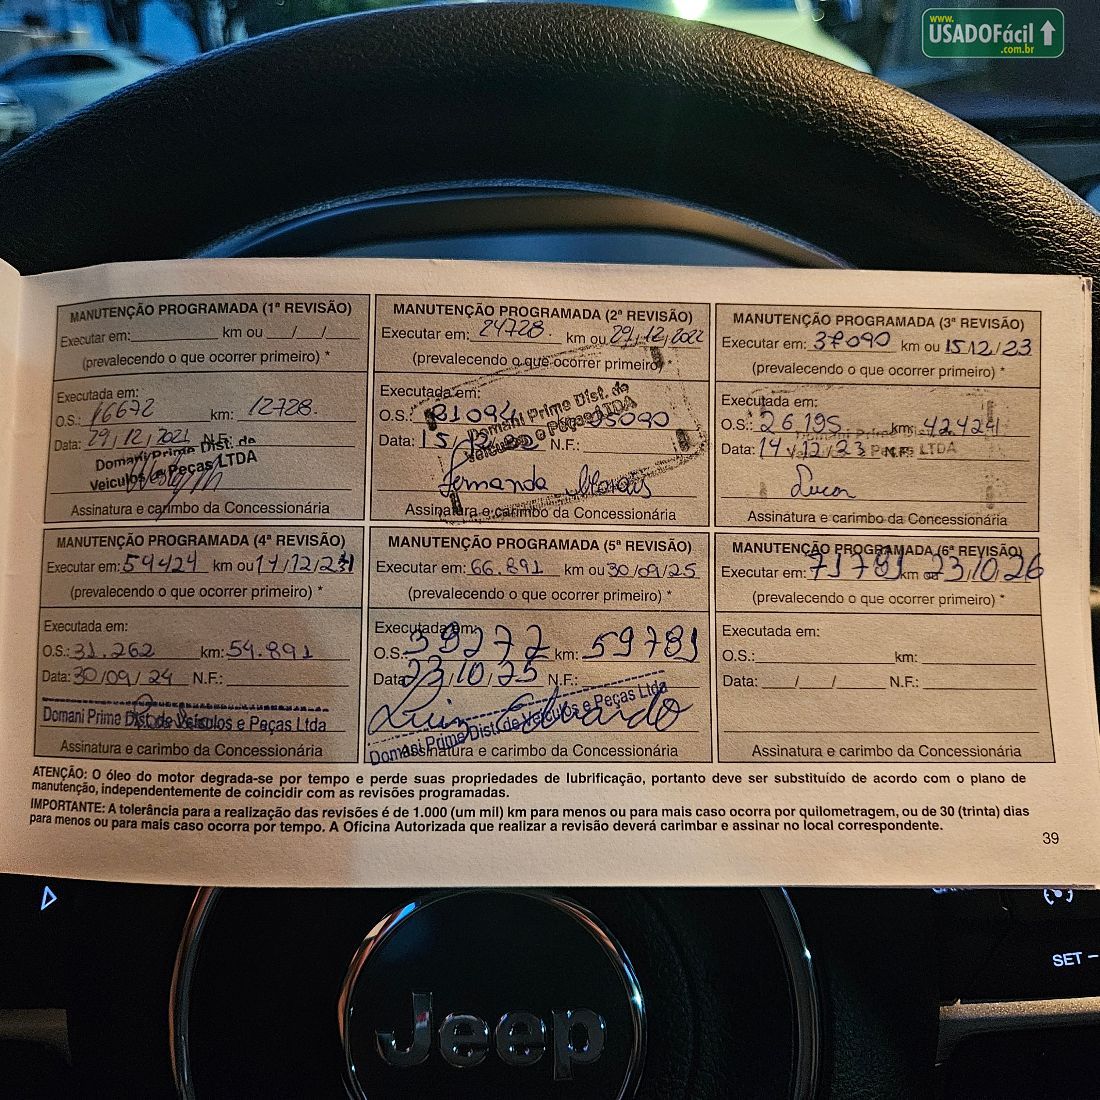 www.
USADOFácil
.com.br
MANUTENÇÃO PROGRAMADA (1ª REVISÃO)
Executar em: km ou / /
(prevalecendo o que ocorrer primeiro) *
Executada em:
O.S.: 16672 km: 12728.
Data: 29/12/2021 N.F.:
Domani Prime Dist. de
Veiculos e Peças LTDA
Assinatura e carimbo da Concessionária
MANUTENÇÃO PROGRAMADA (2ª REVISÃO)
Executar em: 24728. km ou 29/12/2022
(prevalecendo o que ocorrer primeiro) *
Executada em:
O.S.: 21094 25090
Data: 15/12/22 N.F.:
Domani Prime Dist. de
Veiculos e Peças LTDA
Fernanda Morais
Assinatura e carimbo da Concessionária
MANUTENÇÃO PROGRAMADA (3ª REVISÃO)
Executar em: 37090 km ou 15/12/23
(prevalecendo o que ocorrer primeiro) *
Executada em:
O.S.: 26.195 km: 42424
Data: 14/12/23 N.F.:
Domani Prime Dist.
Peças LTDA
Assinatura e carimbo da Concessionária
MANUTENÇÃO PROGRAMADA (4ª REVISÃO)
Executar em: 54424 km ou 14/12/24
(prevalecendo o que ocorrer primeiro) *
Executada em:
O.S.: 31.262 km: 54.891
Data: 30/09/24 N.F.:
Domani Prime Dist. de Veículos e Peças Ltda
Assinatura e carimbo da Concessionária
MANUTENÇÃO PROGRAMADA (5ª REVISÃO)
Executar em: 66.891 km ou 30/09/25
(prevalecendo o que ocorrer primeiro) *
Executada em:
O.S.: 38272 km: 59781
Data: 23/10/25 N.F.:
Luis Eduardo
Domani Prime Dist. de Veículos e Peças Ltda
Assinatura e carimbo da Concessionária
MANUTENÇÃO PROGRAMADA (6ª REVISÃO)
Executar em: 71781 km ou 23/10/26
(prevalecendo o que ocorrer primeiro) *
Executada em:
O.S.: km:
Data: / / N.F.:
Assinatura e carimbo da Concessionária
ATENÇÃO: O óleo do motor degrada-se por tempo e perde suas propriedades de lubrificação, portanto deve ser substituído de acordo com o plano de
manutenção, independentemente de coincidir com as revisões programadas.
IMPORTANTE: A tolerância para a realização das revisões é de 1.000 (um mil) km para menos ou para mais caso ocorra por quilometragem, ou de 30 (trinta) dias
para menos ou para mais caso ocorra por tempo. A Oficina Autorizada que realizar a revisão deverá carimbar e assinar no local correspondente.
39
SET –
Jeep